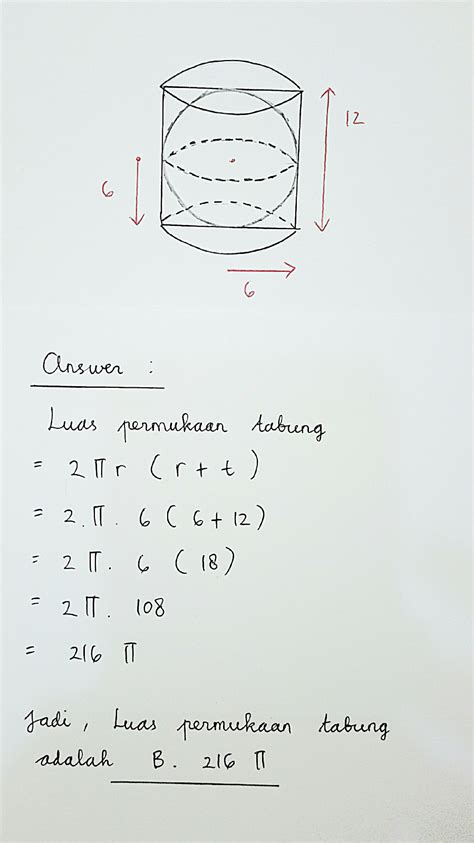 12
6
6
Answer :
Luas permukaan tabung
= 2πr (r + t)
= 2.π. 6 (6 + 12)
= 2π. 6 (18)
= 2π. 108
= 216 π
Jadi, Luas permukaan tabung
adalah B. 216 π